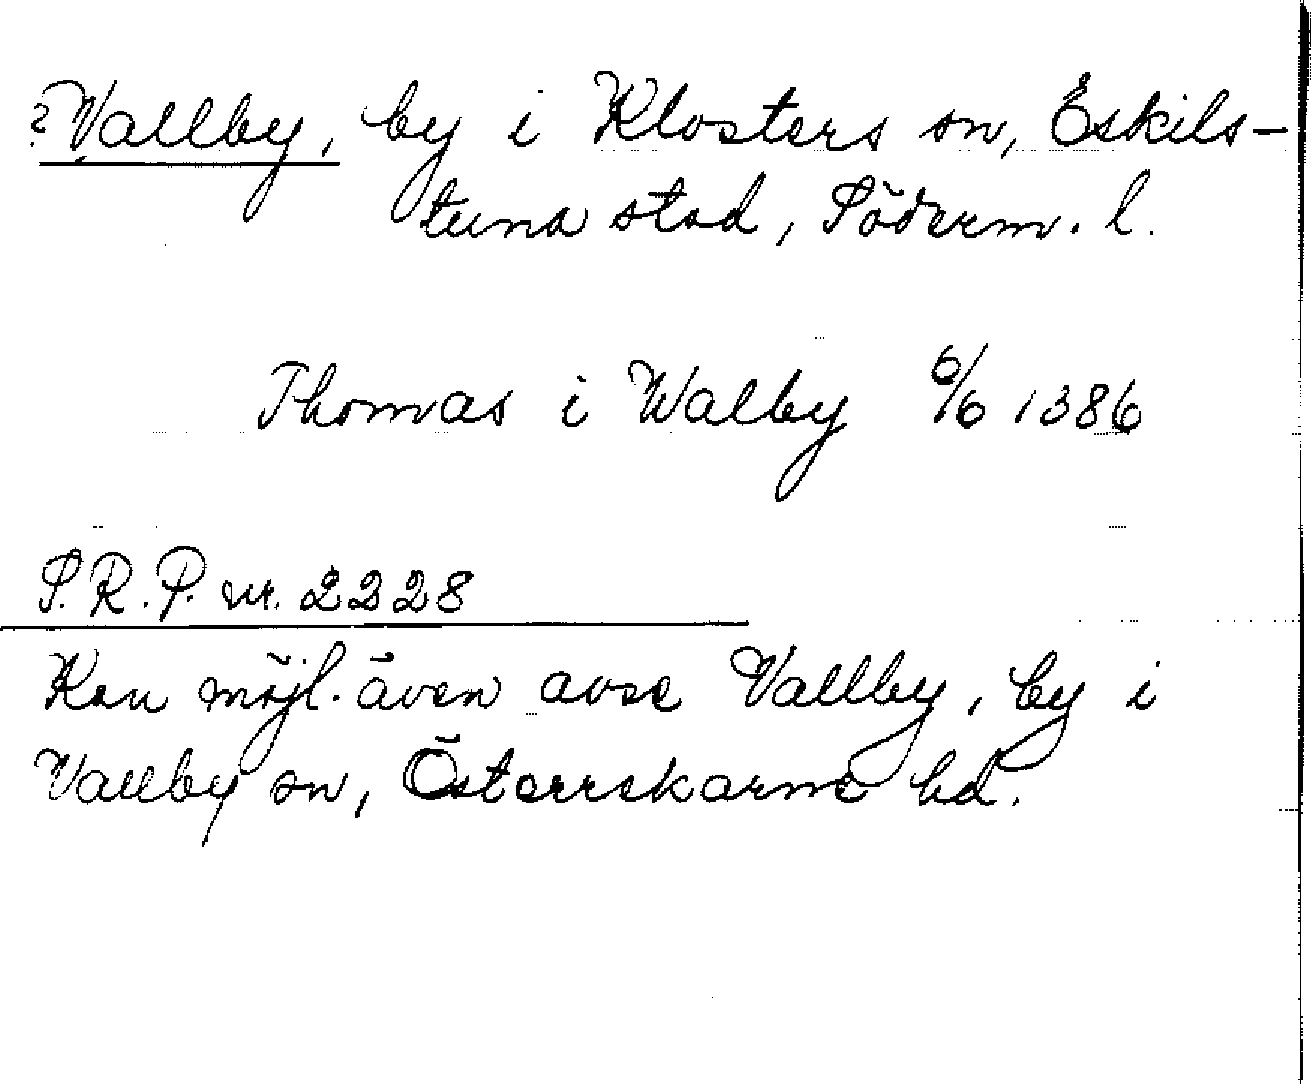 ? Vallby, by i Klosters sn, Eskils-
tuna stad, Söderm. l.
Thomas i Walby 6/6 1386
S.R.P. nr. 2228
Kan möjl. även avse Vallby, by i
Vallby sn, Österrekarne hd.